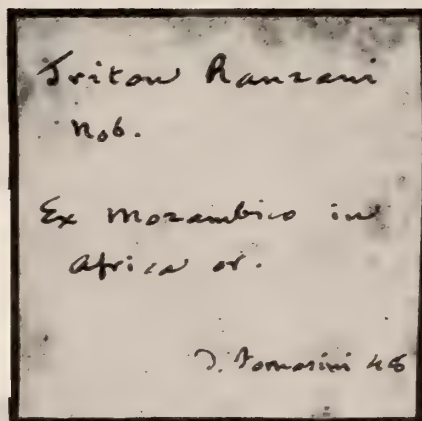 Triton Ranzani
Nob.
Ex Mozambico in
Africa or.
D. Fornasini 46